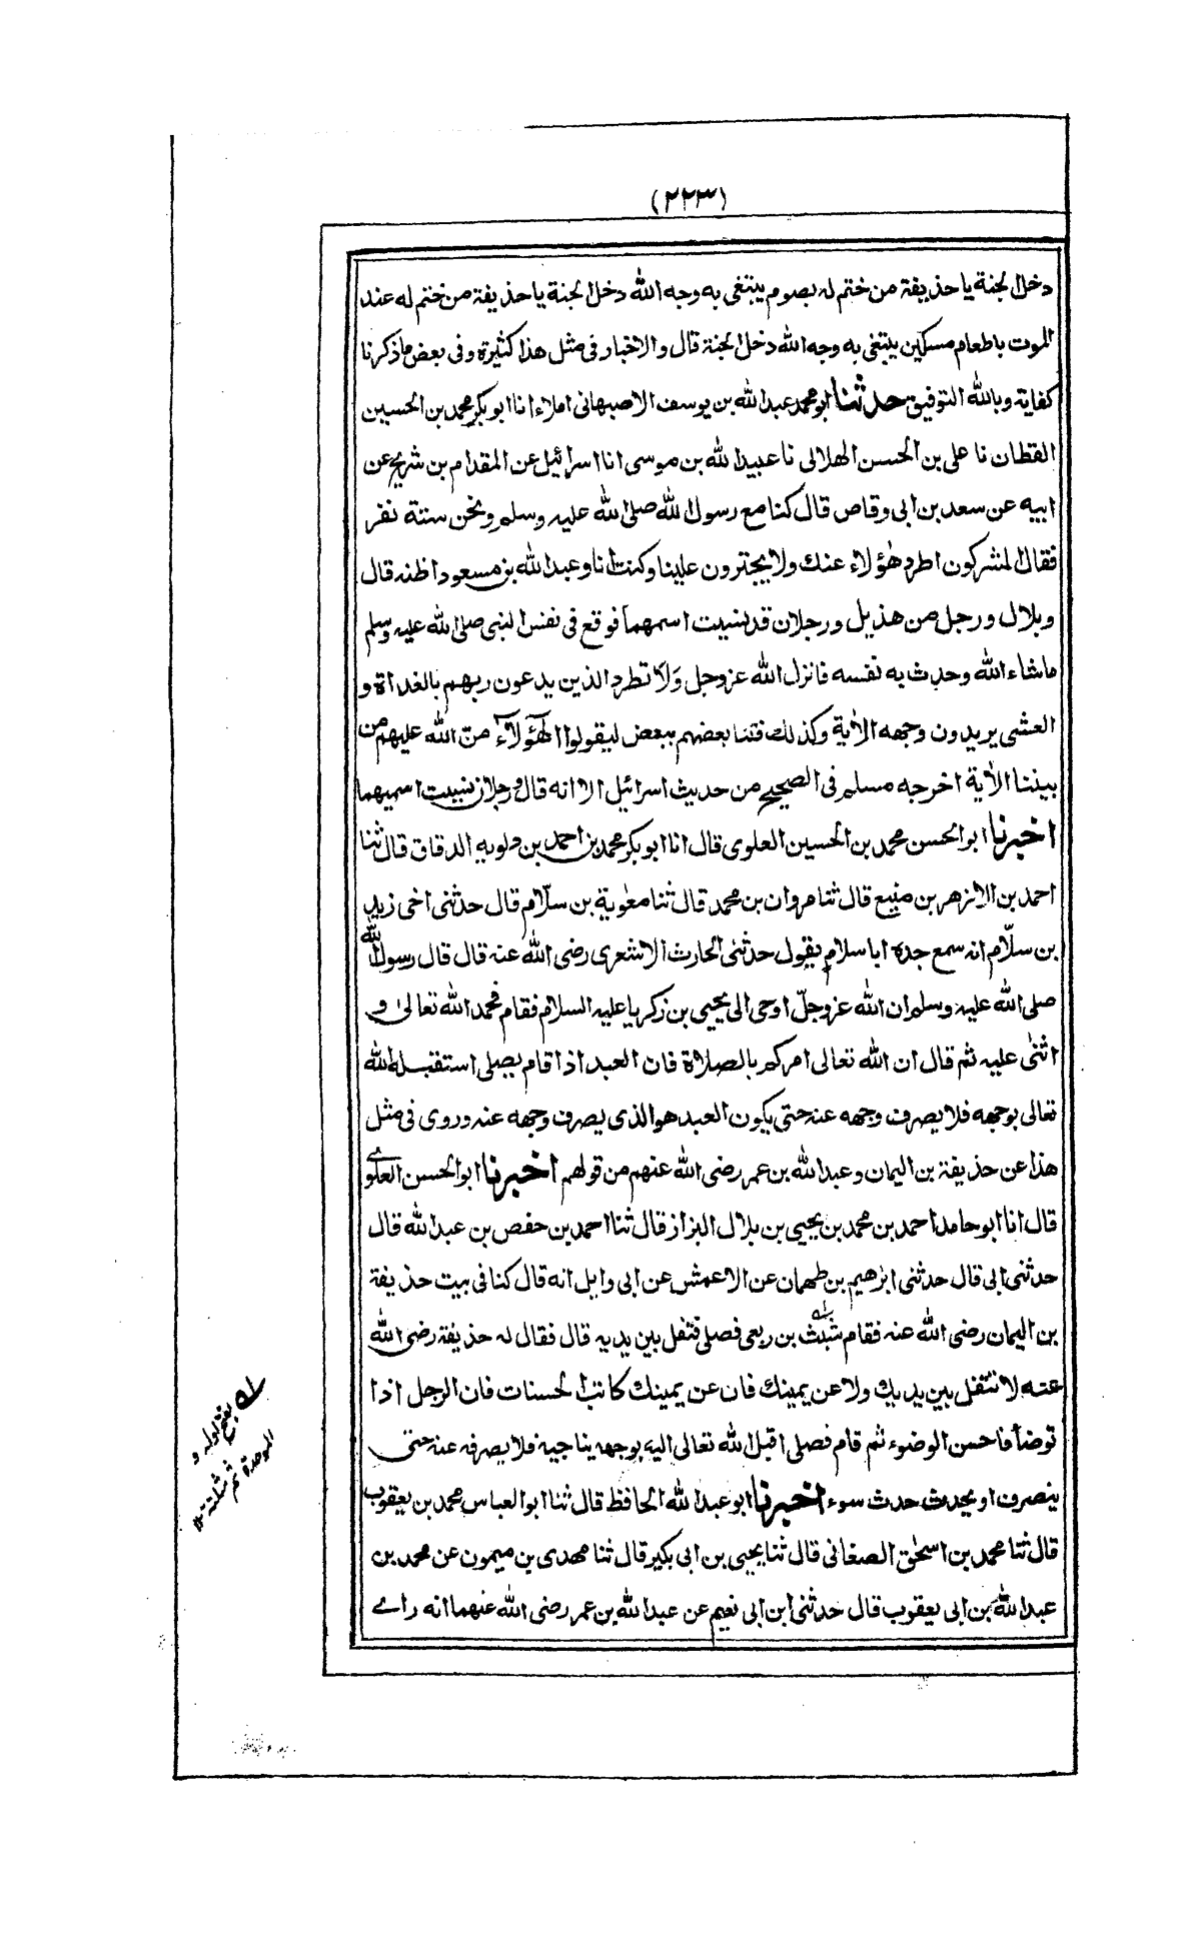 (٢٢٣)
دخل الجنة يا حذيفة من ختم له بصوم يبتغى به وجه الله دخل الجنة يا حذيفة من ختم له عند
الموت باطعام مسكين يبتغى به وجه الله دخل الجنة قال والاخبار فى مثل هذا كثيرة وفى بعض ما ذكرنا
كفاية وبالله التوفيق حدثنا ابو محمد عبد الله بن يوسف الاصبهانى املاء انا ابو بكر محمد بن الحسين
القطان نا على بن الحسن الهلالى نا عبيد الله بن موسى انا اسرائيل عن المقدام بن شريح عن
ابيه عن سعد بن ابى وقاص قال كنا مع رسول الله صلى الله عليه وسلم ونحن ستة نفر
فقال المشركون اطرد هٰؤلاء عنك ولا يجترون علينا وكنت انا وعبد الله بن مسعود اظنه قال
وبلال ورجل من هذيل ورجلان قد نسيت اسمهما فوقع فى نفس النبى صلى الله عليه وسلم
ماشاء الله وحدث به نفسه فانزل الله عز وجل وَلَا تطرد الذين يدعون ربهم بالغداة و
العشى يريدون وجهه الاٰية وكذلك فتنا بعضهم ببعض ليقولوا اَهٰٓؤلاَء منّ الله عليهم من
بيننا الاٰية اخرجه مسلم فى الصحيح من حديث اسرائيل الا انه قال ورجلان نسيت اسميهما
اخبرنا ابو الحسن محمد بن الحسين العلوى قال انا ابو بكر محمد بن احمد بن دلويه الدقاق قال ثنا
احمد بن الازهر بن منيع قال ثنا مروان بن محمد قال ثنا معٰوية بن سلّام قال حدثنى اخى زيد
بن سلّام انه سمع جده ابا سلام يقول حدثنى الحارث الاشعرى رضى الله عنه قال قال رسول الله
صلى الله عليه وسلم ان الله عز وجلّ اوحى الى يحيى بن زكريا عليه السلام فقام فحمد الله تعالىٰ و
اثنىٰ عليه ثم قال ان الله تعالى امركم بالصلاة فان العبد اذا قام يصلى استقبله الله
تعالى بوجهه فلا يصرف وجهه عنه حتى يكون العبد هو الذى يصرف وجهه عنه وروى فى مثل
هذا عن حذيفة بن اليمان وعبد الله بن عمر رضى الله عنهم من قولهم اخبرنا ابو الحسن العلوى
قال انا ابو حامد احمد بن محمد بن يحيى بن بلال البزاز قال ثنا احمد بن حفص بن عبد الله قال
حدثنى ابى قال حدثنى ابرٰهيم بن طهمان عن الاعمش عن ابى وايل انه قال كنا فى بيت حذيفة
بن اليمان رضى الله عنه فقام شبث بن ربعى فصلى فتفل بين يديه قال فقال له حذيفة رضى الله
عنه لا تتفل بين يديك ولا عن يمينك فان عن يمينك كاتب الحسنات فان الرجل اذا
توضأ فاحسن الوضوء ثم قام فصلى اقبل الله تعالى اليه بوجهه يناجيه فلا يصرفه عنه حتى
ينصرف او يحدث حدث سوء اخبرنا ابو عبد الله الحافظ قال ثنا ابو العباس محمد بن يعقوب
قال ثنا محمد بن اسحٰق الصغانى قال ثنا يحيى بن ابى بكير قال ثنا مهدى بن ميمون عن محمد بن
عبد الله بن ابى يعقوب قال حدثنى ابن ابى نعيم عن عبد الله بن عمر رضى الله عنهما انه راے
بفتح اوله و
الموحدة ثم مثلثة